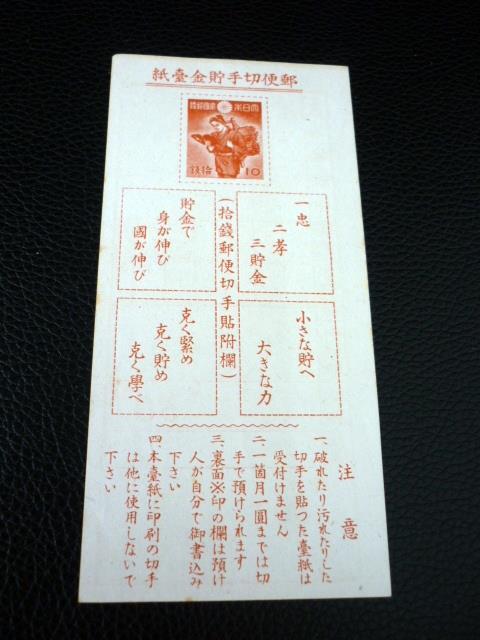 紙臺金貯手切便郵
國帝本日大
便郵國帝本日大
錢拾
10
一忠
二孝
三貯金
(拾錢郵便切手貼附欄)
貯金で
身が伸び
國が伸び
小さな貯へ
大きな力
克く緊め
克く貯め
克く學べ
注意
一、破れたり汚れたりした
切手を貼つた臺紙は
受付けません
二、一箇月一圓までは切
手で預けられます
三、裏面※印の欄は預け
人が自分で御書込み
下さい
四、本臺紙に印刷の切手
は他に使用しないで
下さい